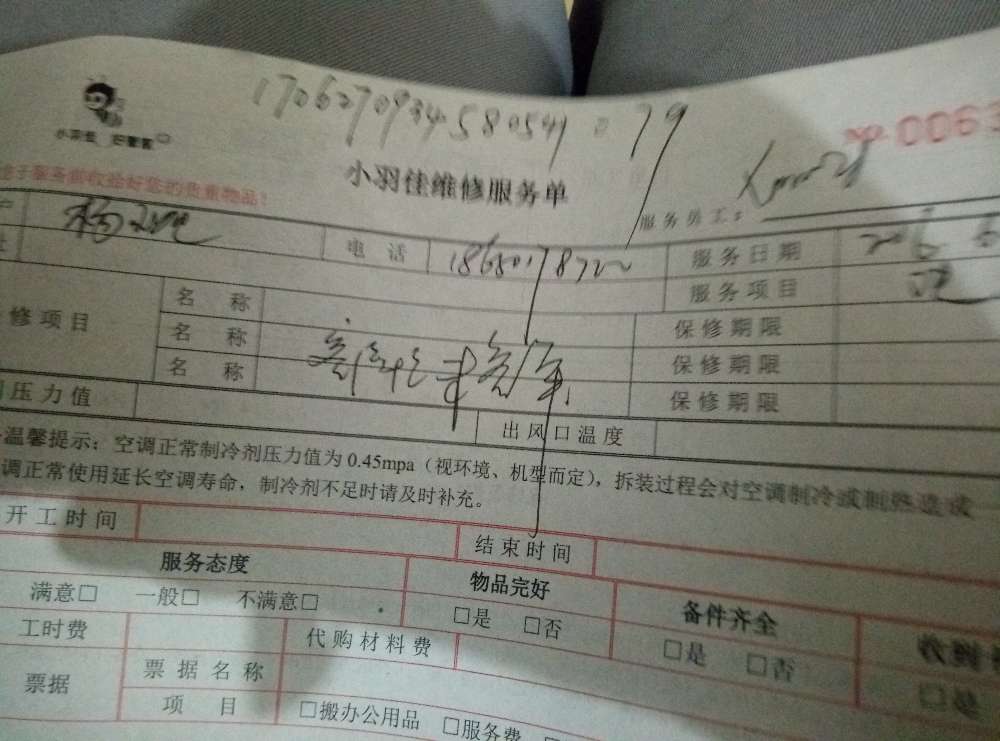 17062709345805419079
小羽佳 好管家
№0063
小羽佳维修服务单
服务前收拾好您的贵重物品!
服务员工:
电 话
服务日期 2016
服务项目
修项目 名 称 保修期限
名 称 保修期限
名 称 保修期限
压力值 出风口温度
温馨提示:空调正常制冷剂压力值为0.45mpa(视环境、机型而定),拆装过程会对空调制冷或制热造成
调正常使用延长空调寿命,制冷剂不足时请及时补充。
开工时间 结束时间
服务态度 物品完好 备件齐全 收到
满意□ 一般□ 不满意□ □是 □否 □是 □否 □是
工时费 代购材料费
票据 票据名称
项 目 □搬办公用品 □服务费